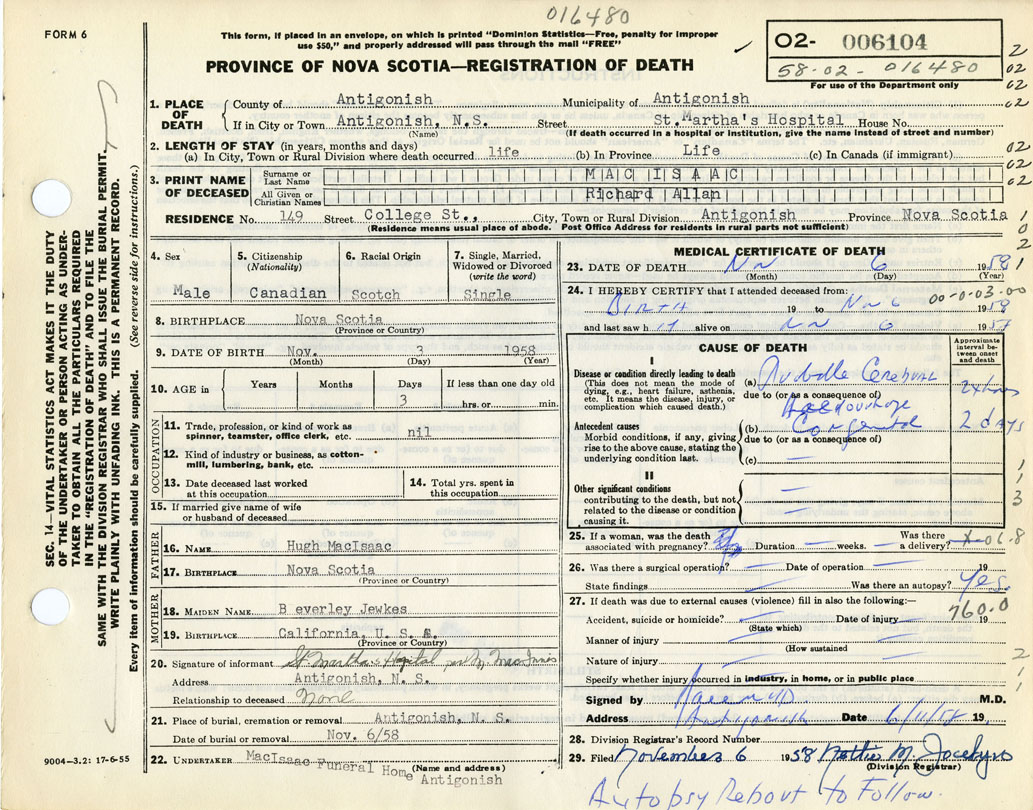 016480
FORM 6
This form, if placed in an envelope, on which is printed "Dominion Statistics—Free, penalty for improper
use $50," and properly addressed will pass through the mail "FREE"
O2- 006104
58-02-016480
For use of the Department only
PROVINCE OF NOVA SCOTIA—REGISTRATION OF DEATH
SEC. 14—VITAL STATISTICS ACT MAKES IT THE DUTY
OF THE UNDERTAKER OR PERSON ACTING AS UNDER-
TAKER TO OBTAIN ALL THE PARTICULARS REQUIRED
IN THE "REGISTRATION OF DEATH" AND TO FILE THE
SAME WITH THE DIVISION REGISTRAR WHO SHALL ISSUE THE BURIAL PERMIT.
WRITE PLAINLY WITH UNFADING INK. THIS IS A PERMANENT RECORD.
Every item of information should be carefully supplied. (See reverse side for instructions.)
1. PLACE OF DEATH
County of Antigonish Municipality of Antigonish
If in City or Town Antigonish, N.S. Street St.Martha's Hospital House No.
(Name) (If death occurred in a hospital or institution, give the name instead of street and number)
2. LENGTH OF STAY (in years, months and days)
(a) In City, Town or Rural Division where death occurred life (b) In Province Life (c) In Canada (if immigrant)
3. PRINT NAME OF DECEASED
Surname or Last Name MAC ISAAC
All Given or Christian Names Richard Allan
RESIDENCE No. 149 Street College St., City, Town or Rural Division Antigonish Province Nova Scotia
(Residence means usual place of abode. Post Office Address for residents in rural parts not sufficient)
4. Sex Male
5. Citizenship (Nationality) Canadian
6. Racial Origin Scotch
7. Single, Married, Widowed or Divorced (write the word) Single
8. BIRTHPLACE Nova Scotia
(Province or Country)
9. DATE OF BIRTH Nov. 3 1958
(Month) (Day) (Year)
10. AGE in Years Months Days If less than one day old
3 hrs. or min.
OCCUPATION
11. Trade, profession, or kind of work as
spinner, teamster, office clerk, etc. nil
12. Kind of industry or business, as cotton-
mill, lumbering, bank, etc.
13. Date deceased last worked
at this occupation
14. Total yrs. spent in
this occupation
15. If married give name of wife
or husband of deceased
FATHER
16. NAME Hugh MacIsaac
17. BIRTHPLACE Nova Scotia
(Province or Country)
MOTHER
18. MAIDEN NAME B everley Jewkes
19. BIRTHPLACE California, U. S. A.
(Province or Country)
20. Signature of informant St Martha's Hospital per MacInnis
Address Antigonish, N. S.
Relationship to deceased None
21. Place of burial, cremation or removal Antigonish, N. S.
Date of burial or removal Nov. 6/58
22. UNDERTAKER MacIsaac Funeral Home Antigonish
(Name and address)
9004—3.2: 17-6-55
MEDICAL CERTIFICATE OF DEATH
23. DATE OF DEATH Nov 6 1958
(Month) (Day) (Year)
24. I HEREBY CERTIFY that I attended deceased from: 00-0-03.00
Birth 19 to Nov 6 1958
and last saw h alive on Nov 6 19
CAUSE OF DEATH
Approximate interval between onset and death
I
Disease or condition directly leading to death
(This does not mean the mode of
dying, e.g., heart failure, asthenia,
etc. It means the disease, injury, or
complication which caused death.)
(a) Cerebral
due to (or as a consequence of)
Antecedent causes
Morbid conditions, if any, giving
rise to the above cause, stating the
underlying condition last.
(b) Congenital 2 days
due to (or as a consequence of)
(c)
II
Other significant conditions
contributing to the death, but not
related to the disease or condition
causing it.
25. If a woman, was the death
associated with pregnancy? Duration weeks. Was there
a delivery?
26. Was there a surgical operation? Date of operation 19
State findings Was there an autopsy? Yes.
27. If death was due to external causes (violence) fill in also the following:—
760.0
Accident, suicide or homicide? Date of injury 19
(State which)
Manner of injury
(How sustained
Nature of injury
Specify whether injury occurred in industry, in home, or in public place
Signed by M.D.
Address Antigonish Date 6/11/58 19
28. Division Registrar's Record Number
29. Filed November 6 1958 M. Jocelyn
(Division Registrar)
Autopsy Report to Follow.